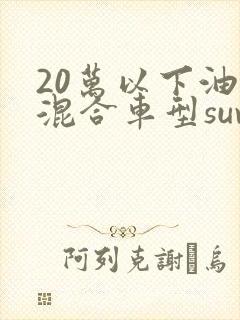 20萬以下油
混合車型suv
阿列克謝·烏